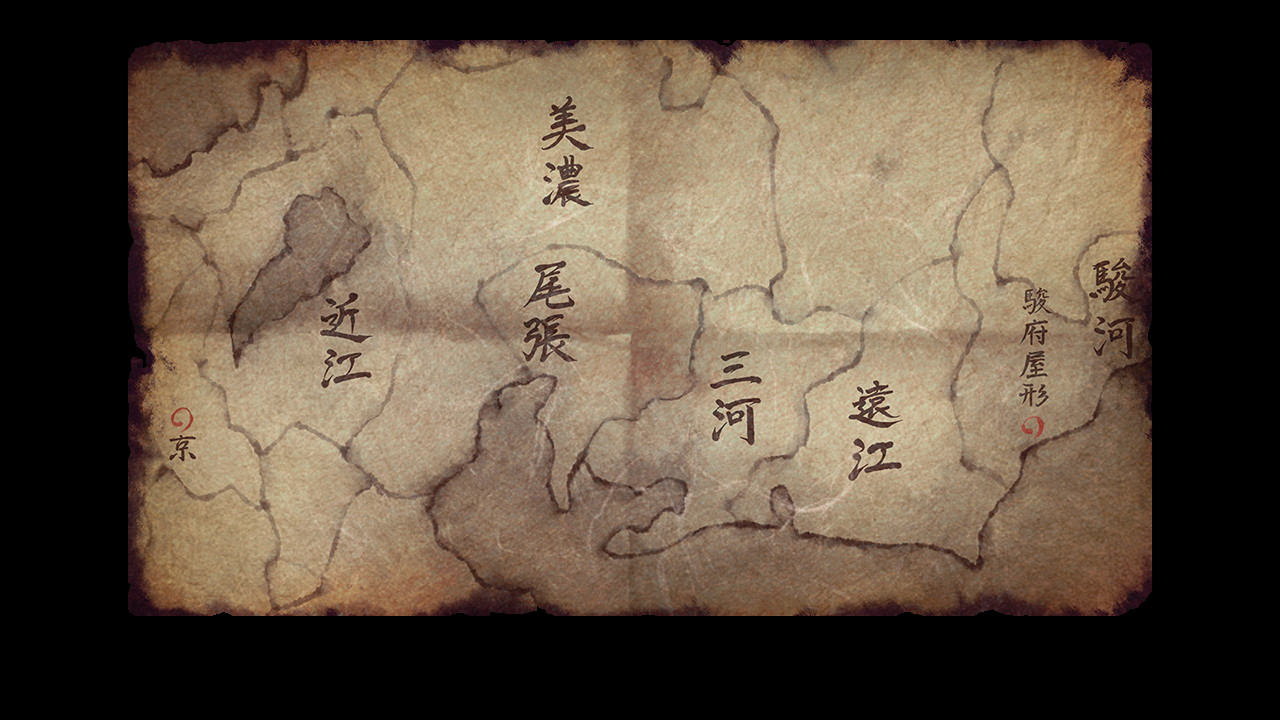 駿河
駿府屋形
遠江
三河
美濃
尾張
近江
京